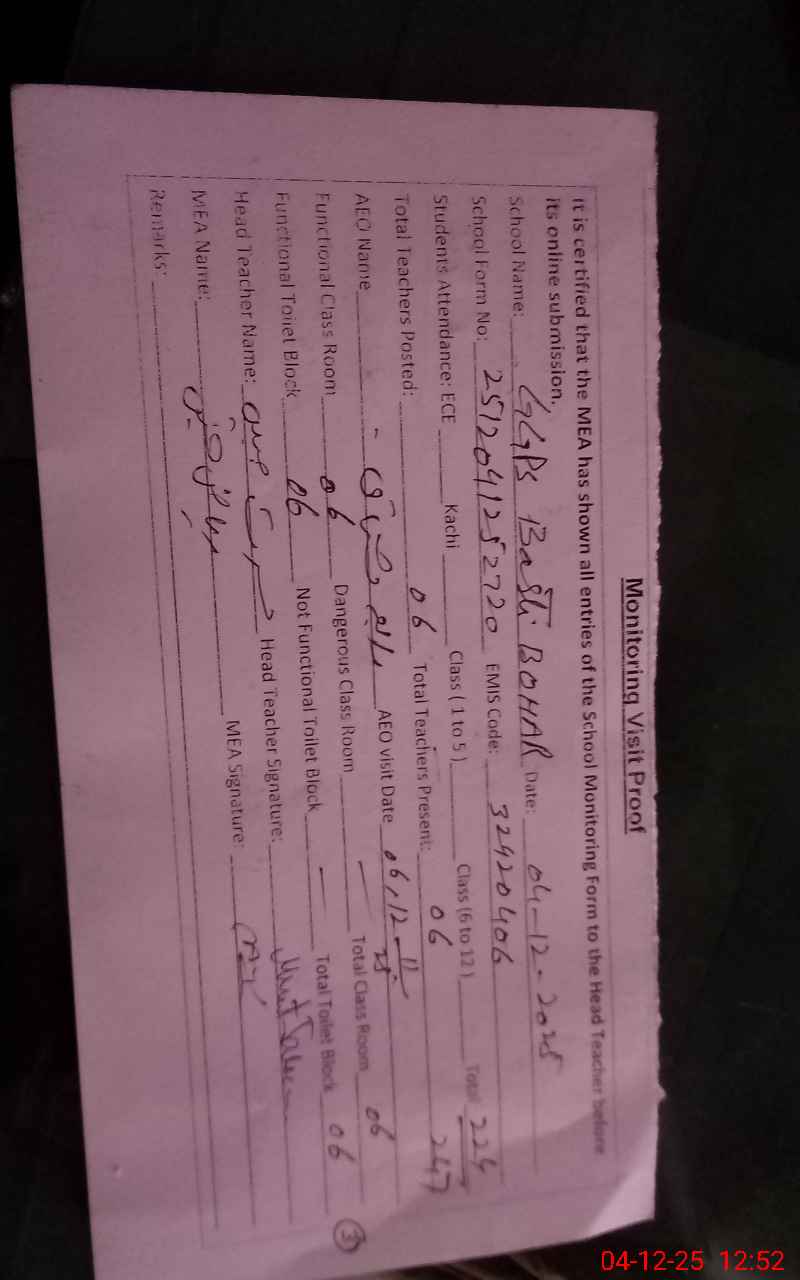 Monitoring Visit Proof
It is certified that the MEA has shown all entries of the School Monitoring Form to the Head Teacher before
its online submission.
School Name: GGPS Basti BOHAR Date: 04-12-2025
School Form No: 2512041252720 EMIS Code: 32420406
Students Attendance: ECE Kachi Class ( 1 to 5 ) Class (6 to 12 ) Total 224
247
Total Teachers Posted: 06 Total Teachers Present: 06
AEO Name AEO visit Date
Functional Class Room 06 Dangerous Class Room — Total Class Room 06
Functional Toilet Block 06 Not Functional Toilet Block — Total Toilet Block 06
Head Teacher Name: Head Teacher Signature:
MEA Name: MEA Signature:
Remarks:
3
04-12-25 12:52